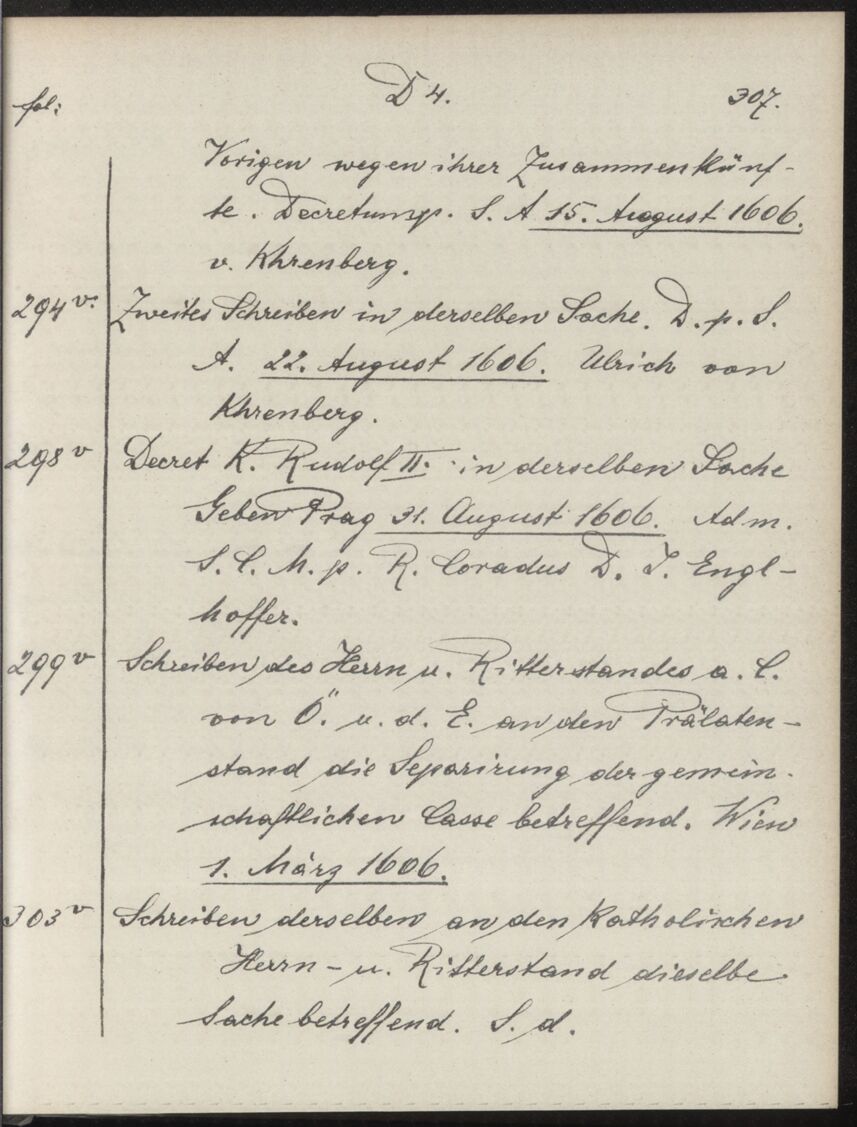 fol: D 4. 307.
Vorigen wegen ihrer Zusammenkünf-
te. Decretum p. S. A 15. August 1606.
v. Khrenberg.
294 v. Zweites Schreiben in derselben Sache. D. p. S.
A. 22. August 1606. Ulrich von
Khrenberg.
298 v Decret K. Rudolf II. in derselben Sache
Geben Prag 31. August 1606. Adm.
S. C. M. p. R. Coradus D. J. Engl-
hoffer.
299 v Schreiben des Herrn u. Ritterstandes a. C.
von Ö. u. d. E. an den Prälaten-
stand die Separirung der gemein-
schaftlichen Casse betreffend. Wien
1. März 1606.
303 v Schreiben derselben an den Katholischen
Herrn- u. Ritterstand dieselbe
Sache betreffend. S. d.